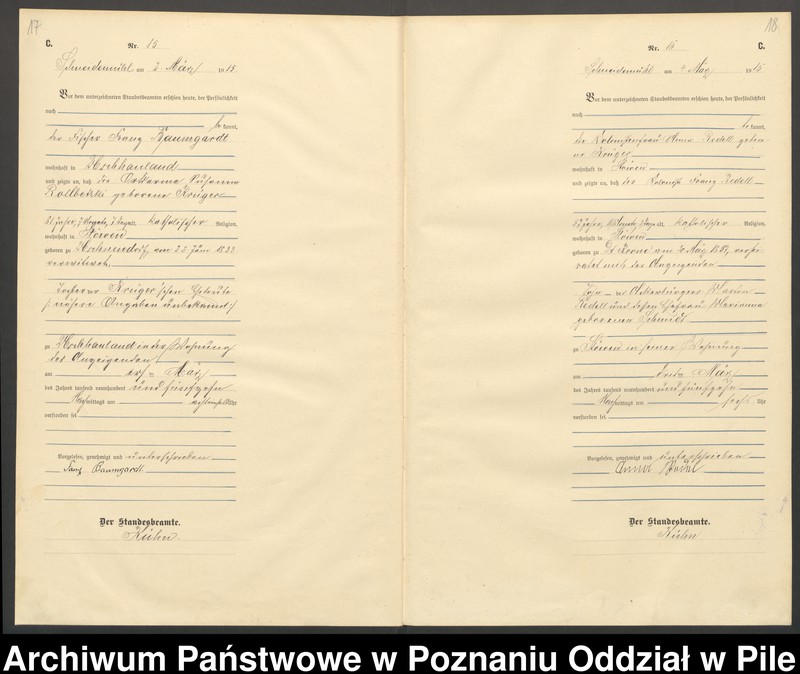 17
C.
Nr. 15
Schneidemühl am 2. März 1915
Vor dem unterzeichneten Standesbeamten erschien heute, der Persönlichkeit
nach
be kannt,
der Fischer Franz Baumgardt
wohnhaft in
und zeigte an, daß die Susanna
geborene Krüger
61 Jahre, 7 Monate, 7 Tage alt, katholischer Religion,
wohnhaft in
geboren zu am
verwitwet,
Tochter der Krüger'schen Eheleute
nähere Angaben unbekannt
zu in der Wohnung
des Anzeigenden
am März
des Jahres tausend neunhundert und fünfzehn
Nachmittags um Uhr
verstorben sei
Vorgelesen, genehmigt und unterschrieben
Franz Baumgardt
Der Standesbeamte.
Kühn
18
Nr. 16
C.
Schneidemühl am 4. März 1915
Vor dem unterzeichneten Standesbeamten erschien heute, der Persönlichkeit
nach
be kannt,
die Anna Redell gebore-
ne Krüger
wohnhaft in
und zeigte an, daß der Franz Redell
Jahre, Monate, Tage alt, katholischer Religion,
wohnhaft in
geboren zu Dt. Krone am März verhei-
ratet mit der Anzeigenden
Sohn des Ackerbürgers
Redell und dessen Ehefrau Marianna
geborenen Schmidt
zu in seiner Wohnung
am dritten März
des Jahres tausend neunhundert und fünfzehn
Nachmittags um sechs Uhr
verstorben sei
Vorgelesen, genehmigt und unterschrieben
Anna Redel
Der Standesbeamte.
Kühn
Archiwum Państwowe w Poznaniu Oddział w Pile